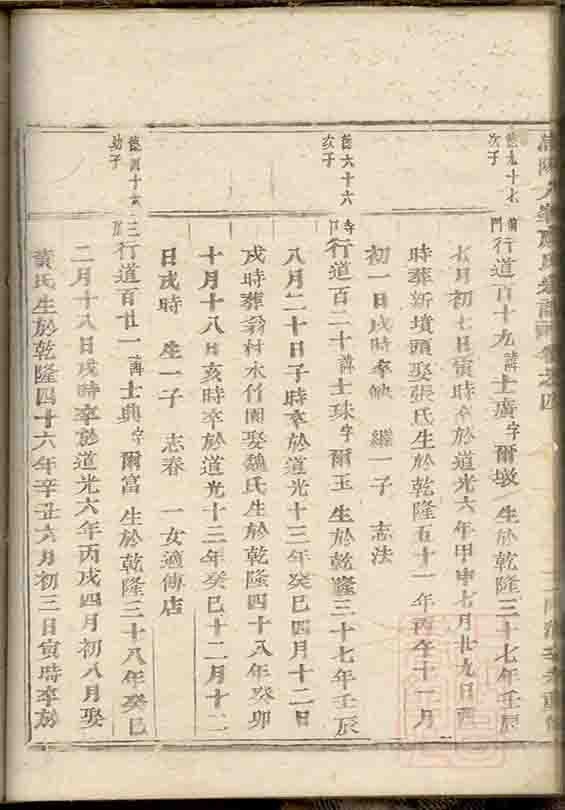 德九十七次子
行道百十九諱士廣字爾墩 生於乾隆三十七年壬辰
七月初七日寅時卒於道光六年甲申七月廿九日酉
時葬新墳頭娶張氏生於乾隆五十一年丙午十一月
初一日戌時卒缺 繼一子 志法
德六十六次子
行道百二十諱士珠字爾玉 生於乾隆三十七年壬辰
八月二十日子時卒於道光十三年癸巳四月十二日
戌時葬翁村水竹園娶魏氏生於乾隆四十八年癸卯
十月十八日亥時卒於道光十三年癸巳十二月十二
日戌時 生一子 志春 一女適傅店
幼子
行道百廿一諱士典字爾富 生於乾隆三十八年癸巳
二月十八日戌時卒於道光六年丙戌四月初八月娶
黃氏生於乾隆四十六年辛丑六月初三日寅時卒於